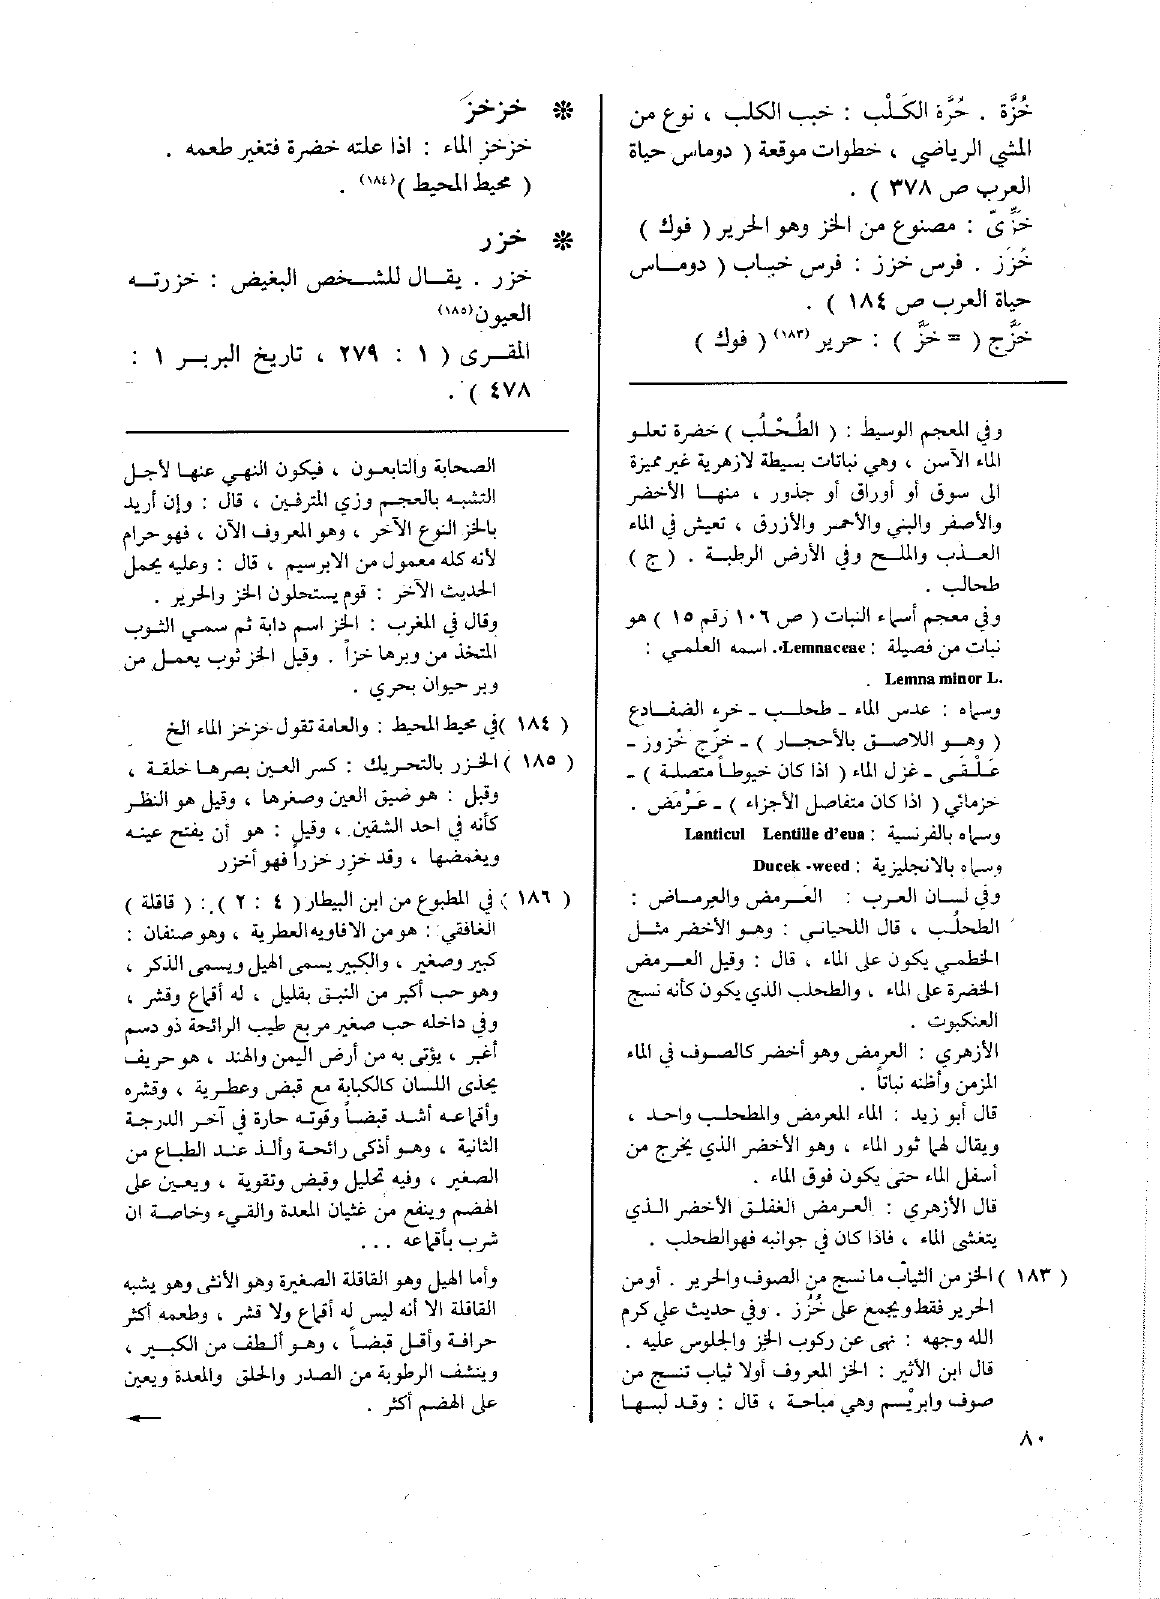 خُزَّة . خُزَّة الكَلْب : خبب الكلب ، نوع من
المشي الرياضي ، خطوات موقعة ( دوماس حياة
العرب ص ٣٧٨ ) .
خَزِّيّ : مصنوع من الخز وهو الحرير ( فوك )
خُزَز . فرس خزز : فرس خباب ( دومـاس
حياة العرب ص ١٨٤ ) .
خَزَّج ( = خَزَّ ) : حرير (١٨٣) ( فوك )
وفي المعجم الوسيط : ( الطُحْلُب ) خضرة تعلو
الماء الآسن ، وهي نباتات بسيطة لازهرية غير مميزة
الى سوق أو أوراق أو جذور ، منهـا الأخضر
والأصفر والبني والأحمر والأزرق ، تعيش في الماء
العـذب والملـح وفي الأرض الرطبـة . ( ج )
طحالب .
وفي معجم أسماء النبات ( ص ١٠٦ رقم ١٥ ) هو
نبات من فصيلة : Lemnaceae. اسمه العلمي :
Lemna minor L. .
وسماه : عدس الماء ـ طحلـب ـ خرء الضفـادع
( وهـو اللاصـق بالأحجـار ) ـ خزّج خُزوز ـ
عَلْقَى ـ غزل الماء ( اذا كان خيوطاً متصلة ) ـ
خزمائي ( اذا كان متفاصل الأجزاء ) ـ عَرْمَض .
وسماه بالفرنسية : Lanticul Lentille d'eua
وسماه بالانجليزية : Ducek -weed
وفي لسـان العرب : العَـرمض والعرمـاض :
الطحلُب ، قال اللحياني : وهـو الأخضر مثـل
الخطمي يكون على الماء ، قال : وقيل العـرمض
الخضرة على الماء ، والطحلب الذي يكون كأنه نسج
العنكبوت .
الأزهري : العرمض وهو أخضر كالصوف في الماء
المزمن وأظنه نباتاً .
قال أبو زيد : الماء المعرمض والمطحلب واحد ،
ويقال لهما ثور الماء ، وهو الأخضر الذي يخرج من
أسفل الماء حتى يكون فوق الماء .
قال الأزهري : العرمض الغفلق الأخضر الـذي
يتغشى الماء ، فاذا كان في جوانبه فهوالطحلب .
( ١٨٣ ) الخز من الثياب ما نسج من الصوف والحرير . أو من
الحرير فقط ويجمع على خُزُز . وفي حديث علي كرم
الله وجهه : نهى عن ركوب الخز والجلوس عليه .
قال ابن الأثير : الخز المعروف أولا ثياب تنسج من
صوف وابريْسم وهي مباحة ، قال : وقد لبسها
٨٠
❊ خزخزَ
خزخز الماء : اذا علته خضرة فتغير طعمه .
( محيط المحيط )(١٨٤) .
❊ خزر
خزر . يقـال للشـخص البغيض : خزرتـه
العيون(١٨٥)
المقـري ( ١ : ٢٧٩ ، تاريخ البربـر ١ :
٤٧٨ ) .
الصحابة والتابعون ، فيكون النهي عنها لأجل
التشبه بالعجم وزي المترفين ، قال : وإن أريد
بالخز النوع الآخر ، وهو المعروف الآن ، فهو حرام
لأنه كله معمول من الابرسيم ، قال : وعليه يحمل
الحديث الآخر : قوم يستحلون الخز والحرير .
وقال في المغرب : الخز اسم دابة ثم سمي الثـوب
المتخذ من وبرها خزاً . وقيل الخز ثوب يعمل من
وبر حيوان بحري .
( ١٨٤ )في محيط المحيط : والعامة تقول خزخز الماء الخ
( ١٨٥ ) الخزر بالتحريك : كسر العين بصرها خلقة ،
وقيل : هو ضيق العين وصغرها ، وقيل هو النظر
كأنه في احد الشقين ، وقيل : هو أن يفتح عينـه
ويغمضها ، وقد خزِر خزراً فهو أخزر
( ١٨٦ ) في المطبوع من ابن البيطار ( ٤ : ٢ ) : ( قاقلة )
الغافقي : هو من الافاويه العطرية ، وهو صنفان :
كبير وصغير ، والكبير يسمى الهيل ويسمى الذكر ،
وهو حب أكبر من النبق بقليل ، له أقماع وقشر ،
وفي داخله حب صغير مربع طيب الرائحة ذو دسم
أغبر ، يؤتى به من أرض اليمن والهند ، هو حريف
يحذى اللسان كالكبابة مع قبض وعطرية ، وقشره
وأقماعه أشد قبضاً وقوتـه حارة في آخر الدرجة
الثانية ، وهـو أذكى رائحـة وألـذ عنـد الطباع من
الصغير ، وفيه تحليل وقبض وتقوية ، ويعـين على
الهضم وينفع من غثيان المعدة والقيء وخاصـة ان
شرب بأقماعه ...
وأما الهيل وهو القاقلة الصغيرة وهو الأنثى وهو يشبه
القاقلة الا أنه ليس له أقماع ولا قشر ، وطعمه أكثر
حرافة وأقـل قبضـاً ، وهـو ألـطف من الكبـير ،
وينشف الرطوبة من الصدر والحلق والمعدة ويعين
على الهضم أكثر .